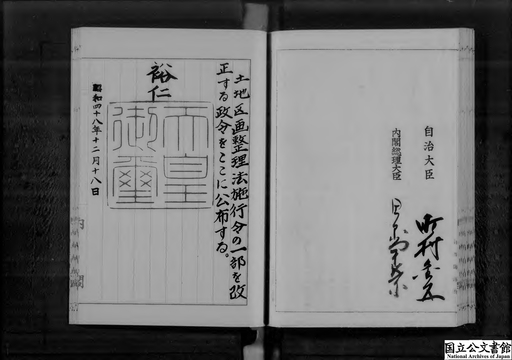 自治大臣
町村金五
内閣総理大臣
田中角榮
土地区画整理法施行令の一部を改
正する政令をここに公布する。
裕仁
天皇
御璽
昭和四十八年十二月十八日
内閣
国立公文書館
National Archives of Japan